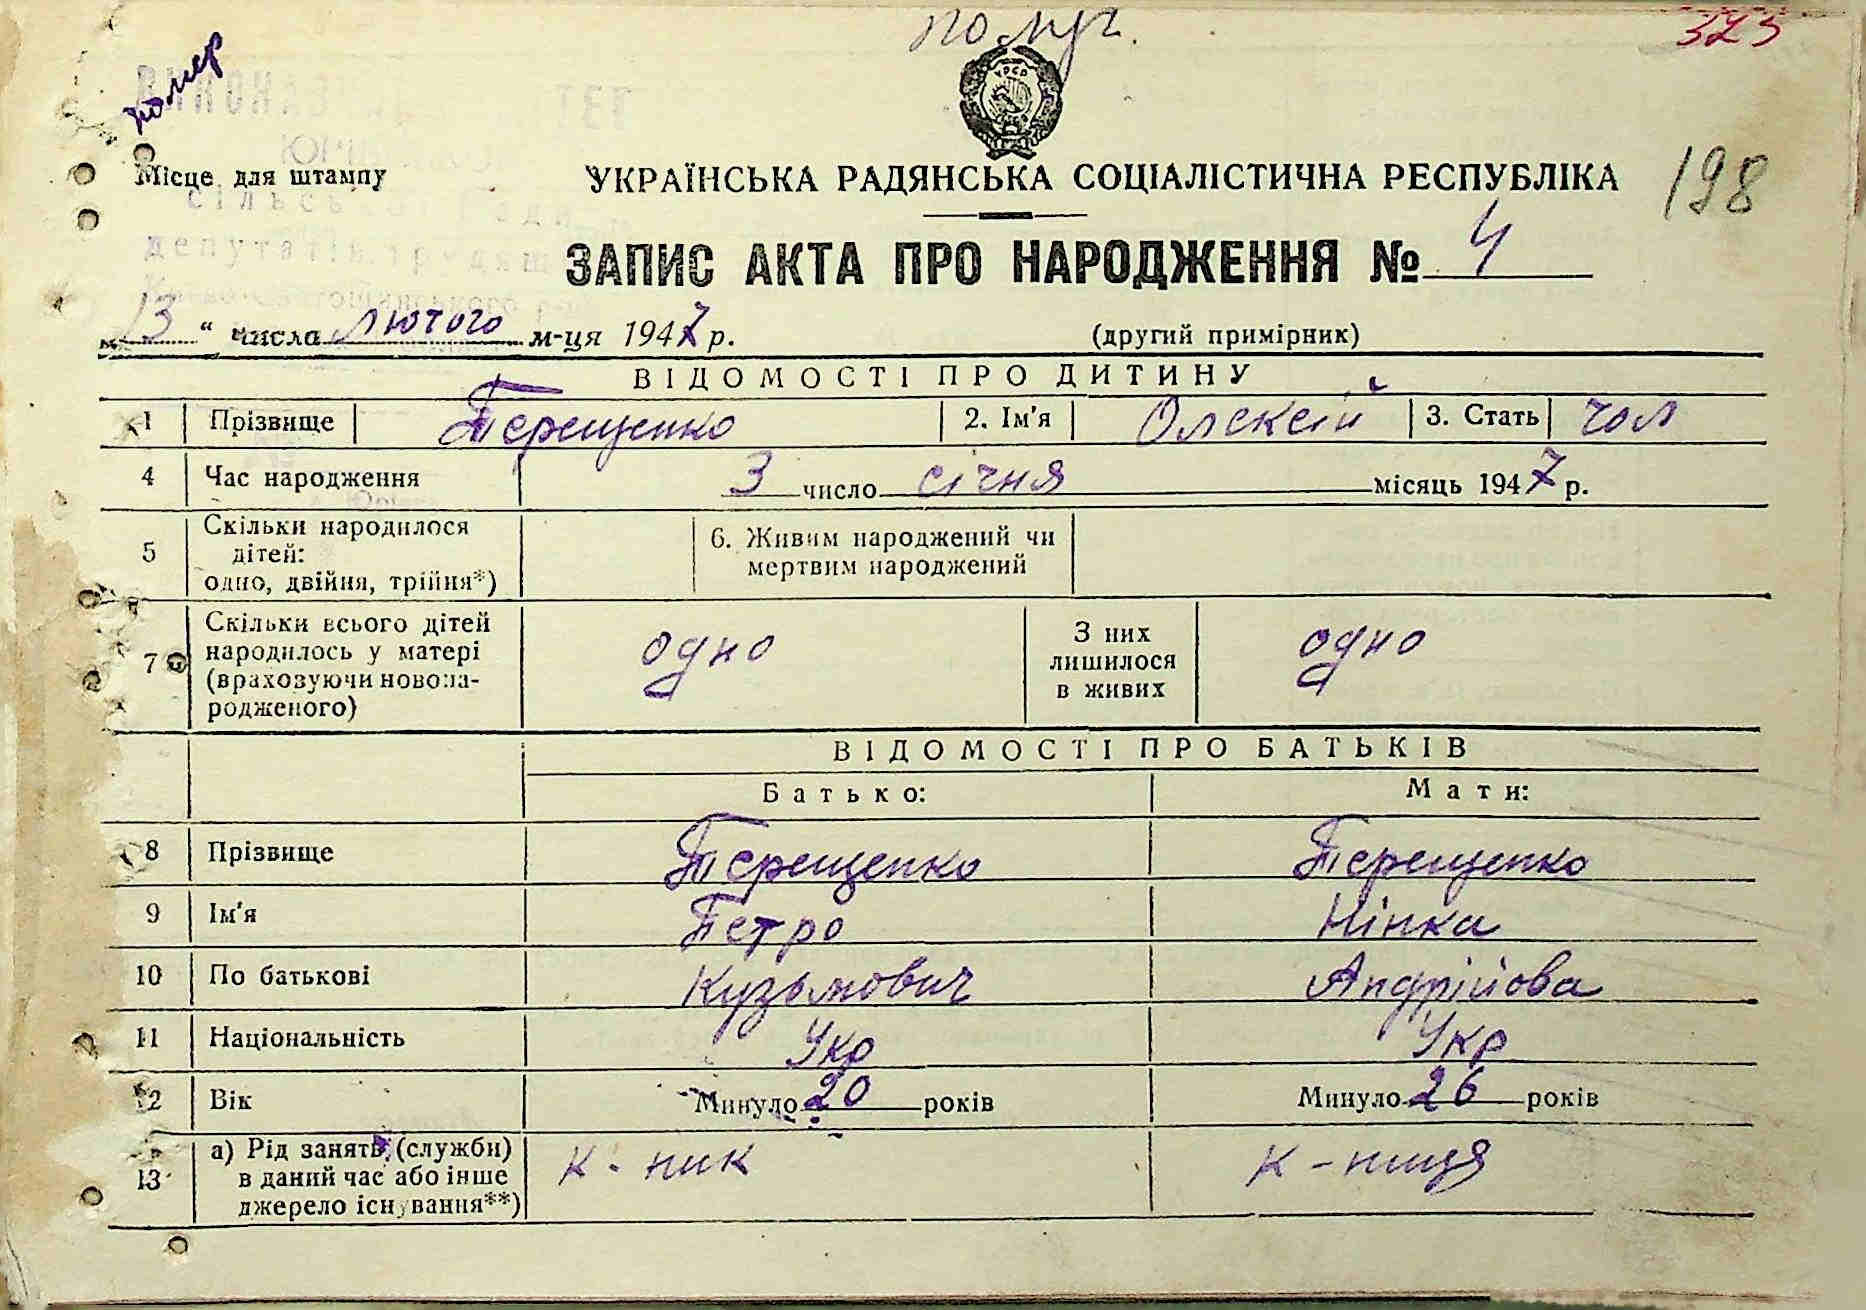 помер
323
Місце для штампу
УКРАЇНСЬКА РАДЯНСЬКА СОЦІАЛІСТИЧНА РЕСПУБЛІКА
198
сільської Ради
депутатів трудящ
ЗАПИС АКТА ПРО НАРОДЖЕННЯ № 4
"13" числа лютого м-ця 1947 р. (другий примірник)
ВІДОМОСТІ ПРО ДИТИНУ
1 Прізвище Терещенко 2. Ім'я Олексій 3. Стать чол
4 Час народження 3 число січня місяць 1947 р.
5 Скільки народилося дітей: одно, двійня, трійня*) 6. Живим народжений чи мертвим народжений
7 Скільки всього дітей народилось у матері (враховуючи новонародженого) одно З них лишилося в живих одно
ВІДОМОСТІ ПРО БАТЬКІВ
Батько: Мати:
8 Прізвище Терещенко Терещенко
9 Ім'я Петро Нінка
10 По батькові Кузьмович Андрійова
11 Національність Укр Укр
12 Вік Минуло 20 років Минуло 26 років
13 а) Рід занять (служби) в даний час або інше джерело існування**) к-ник к-ниця